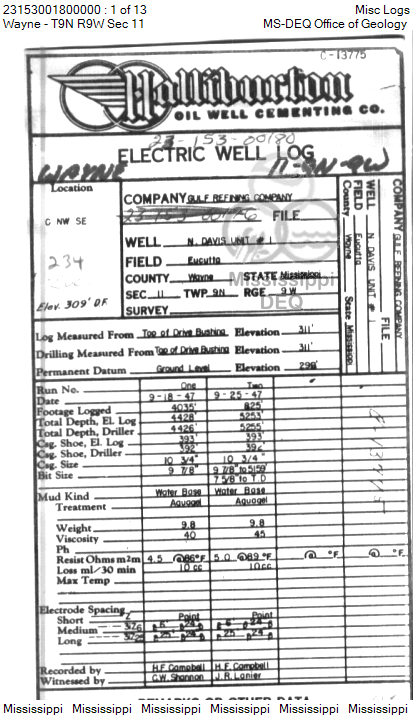 23153001800000 : 1 of 13 Misc Logs
Wayne - T9N R9W Sec 11 MS-DEQ Office of Geology
C-13775
Halliburton
OIL WELL CEMENTING CO.
23-153-00180
ELECTRIC WELL LOG
WAYNE 11-9N-9W
Location
C NW SE
234
Elev. 309' DF
COMPANY GULF REFINING COMPANY
23-153-00176 FILE
WELL N. DAVIS UNIT # 1
FIELD Eucutta
COUNTY Wayne STATE Mississippi
SEC 11 TWP 9N RGE 9W
SURVEY
Mississippi
DEQ
COMPANY GULF REFINING COMPANY
FILE
WELL N. DAVIS UNIT # 1
FIELD Eucutta
County Wayne State Mississippi
Log Measured From Top of Drive Bushing Elevation 311'
Drilling Measured From Top of Drive Bushing Elevation 311'
Permanent Datum Ground Level Elevation 299'
Run No. One Two
Date 9-18-47 9-25-47
Footage Logged 4035' 825'
Total Depth, El. Log 4428' 5253'
Total Depth, Driller 4426' 5255'
Csg. Shoe, El. Log 393' 393'
Csg. Shoe, Driller 392' 392'
Csg. Size 10 3/4" 10 3/4"
Bit Size 9 7/8" 9 7/8" to 5159'
7 5/8" to T.D
Mud Kind Water Base Water Base
Treatment Aquagel Aquagel
Weight 9.8 9.8
Viscosity 40 45
Ph
Resist Ohms m2m 4.5 @86°F 5.0 @89°F @ °F @ °F
Loss ml/30 min 10cc 10cc
Max Temp
Electrode Spacing
Short Point Point
Medium
Long
Recorded by H.F. Campbell H.F. Campbell
Witnessed by C.W. Shannon J.R. Lanier
REMARKS OR OTHER DATA
Mississippi Mississippi Mississippi Mississippi Mississippi Mississippi